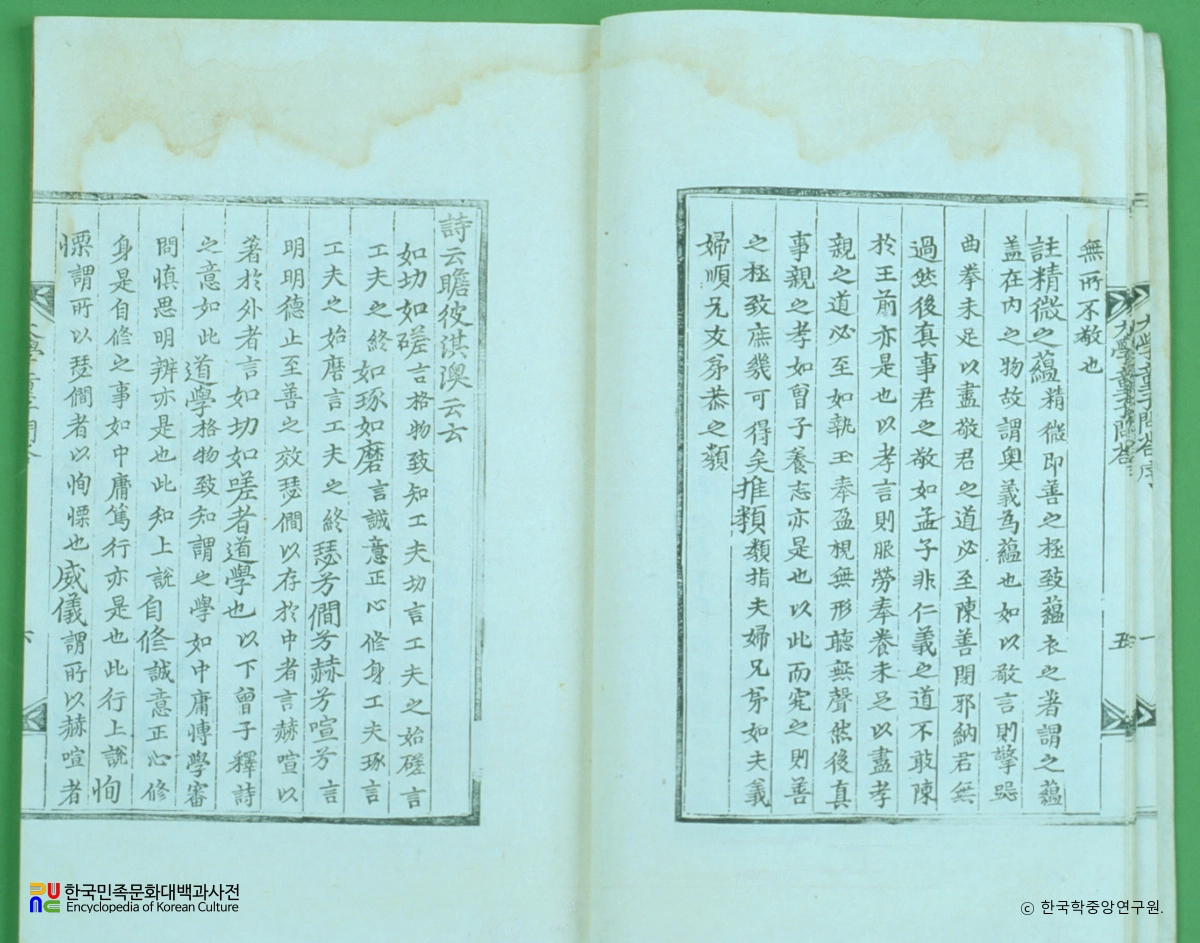 大學童子問答序
一
大學童子問答
五
無所不敬也
註精微之蘊精微即善之極致蘊衣之著謂之蘊
盖在内之物故謂奧義爲蘊也如以敬言則擎跽
曲拳未足以盡敬君之道必至陳善閉邪納君無
過然後真事君之敬如孟子非仁義之道不敢陳
於王前亦是也以孝言則服勞奉養未足以盡孝
親之道必至如執玉奉盈視無形聽無聲然後真
事親之孝如曾子養志亦是也以此而究之則善
之極致庶幾可得矣推類類指夫婦兄弟如夫義
婦順兄友弟恭之類
詩云瞻彼淇澳云云
如切如磋言格物致知工夫切言工夫之始磋言
工夫之終如琢如磨言誠意正心修身工夫琢言
工夫之始磨言工夫之終瑟兮僩兮赫兮喧兮言
明明德止至善之效瑟僩以存於中者言赫喧以
著於外者言如切如嗟者道學也以下曾子釋詩
之意如此道學格物致知謂之學如中庸博學審
問慎思明辨亦是也此知上說自修誠意正心修
身是自修之事如中庸篤行亦是也此行上說恂
慄謂所以瑟僩者以恂慄也威儀謂所以赫喧者
六
한국민족문화대백과사전
Encyclopedia of Korean Culture
ⓒ 한국학중앙연구원.